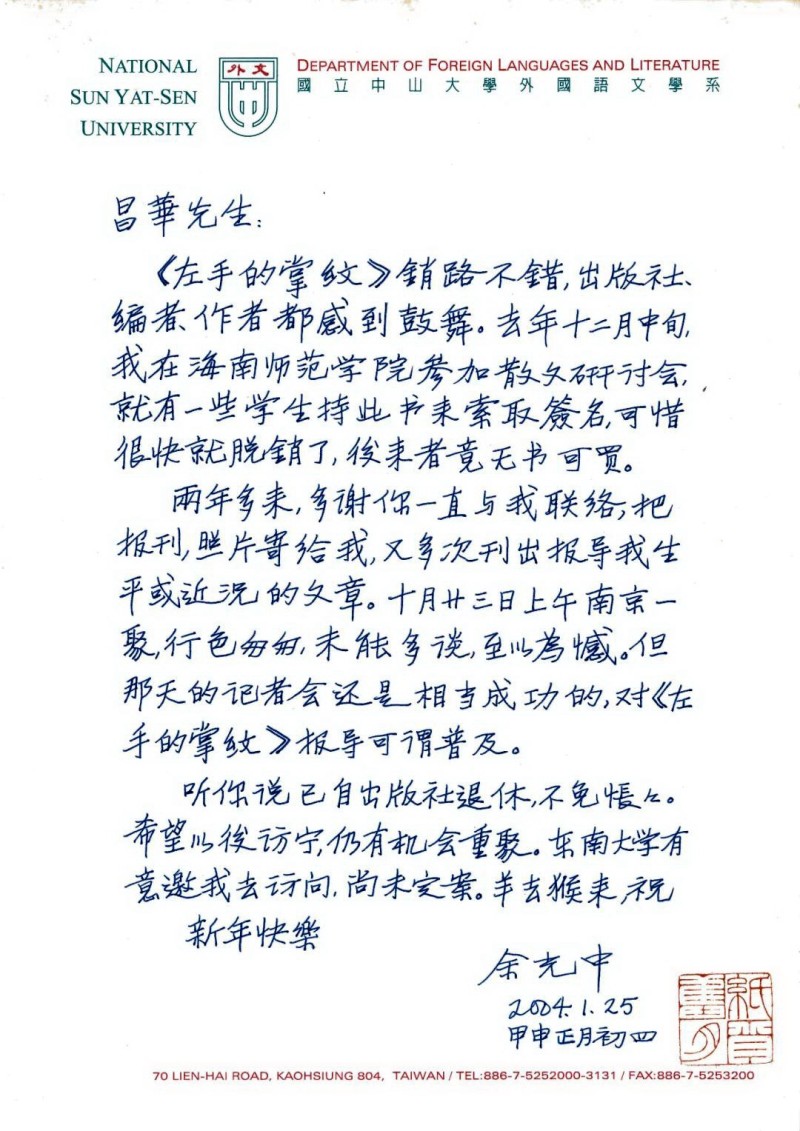 NATIONAL
SUN YAT-SEN
UNIVERSITY
外文
DEPARTMENT OF FOREIGN LANGUAGES AND LITERATURE
國立中山大學外國語文學系
昌華先生:
《左手的掌紋》銷路不错,出版社、
编者、作者都感到鼓舞。去年十二月中旬,
我在海南师范学院参加散文研讨会,
就有一些学生持此书来索取簽名,可惜
很快就脱銷了,後来者竟无书可買。
兩年多来,多谢你一直与我联络,把
报刊,照片寄给我,又多次刊出报导我生
平或近况的文章。十月廿三日上午南京一
聚,行色匆匆,未能多谈,至以為憾。但
那天的记者会还是相当成功的,对《左
手的掌紋》报导可谓普及。
听你说已自出版社退休,不免悵々。
希望以後访宁,仍有机会重聚。东南大学有
意邀我去访问,尚未定案。羊去猴来,祝
新年快樂
余光中
2004.1.25
甲申正月初四
70 LIEN-HAI ROAD, KAOHSIUNG 804, TAIWAN / TEL:886-7-5252000-3131 / FAX:886-7-5253200